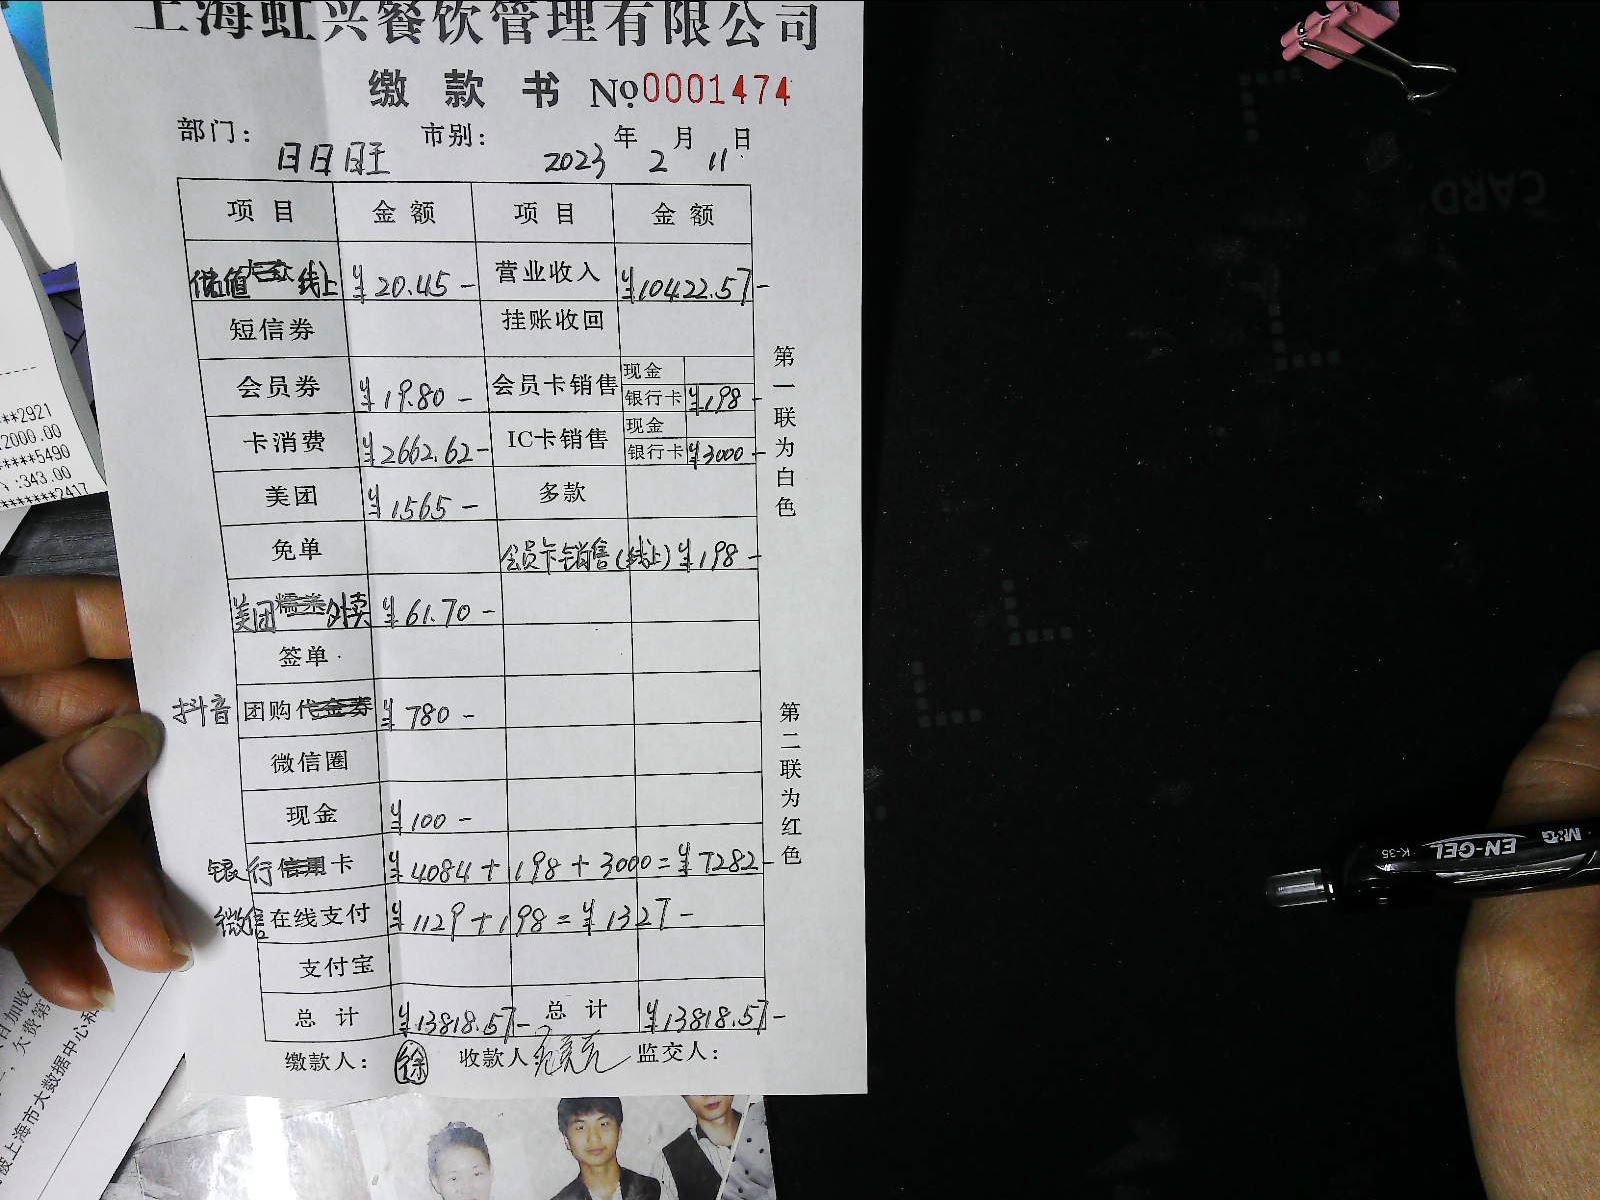 上海虹兴餐饮管理有限公司
缴 款 书 No 0001474
部门: 日日旺 市别: 2023 年 2 月 11 日
项 目 金 额 项 目 金 额
储值 线上 ¥20.45- 营业收入 ¥10422.57-
短信券 挂账收回
会员券 ¥19.80- 会员卡销售 现金
银行卡 ¥198-
卡消费 ¥2662.62- IC卡销售 现金
银行卡 ¥3000-
美团 ¥1565- 多款
免单 会员卡销售(线上) ¥198-
美团 外卖 ¥61.70-
签单
抖音 团购代金券 ¥780-
微信圈
现金 ¥100-
银行信用卡 ¥4084+198+3000=¥7282-
微信 在线支付 ¥1129+198=¥1327-
支付宝
总 计 ¥13818.57- 总 计 ¥13818.57-
缴款人: 徐 收款人 监交人:
第一联为白色
第二联为红色
**2921
2000.00
*****5490
:343.00
*******2417
被上海市大数据中心和
CARD
M&G EN-GEL K-35